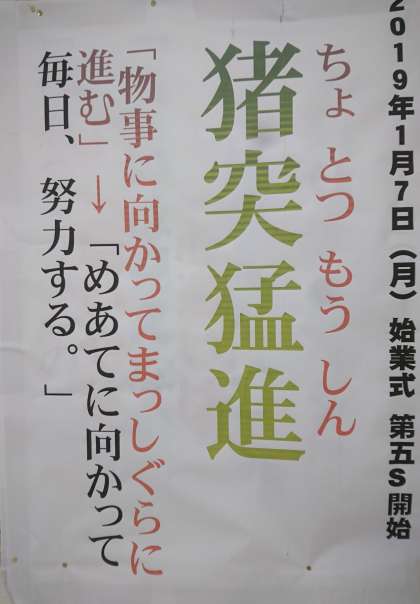 2019年1月7日（月）始業式 第五S開始
ちょ とつ もう しん
猪突猛進
「物事に向かってまっしぐらに
進む」→「めあてに向かって
毎日、努力する。」